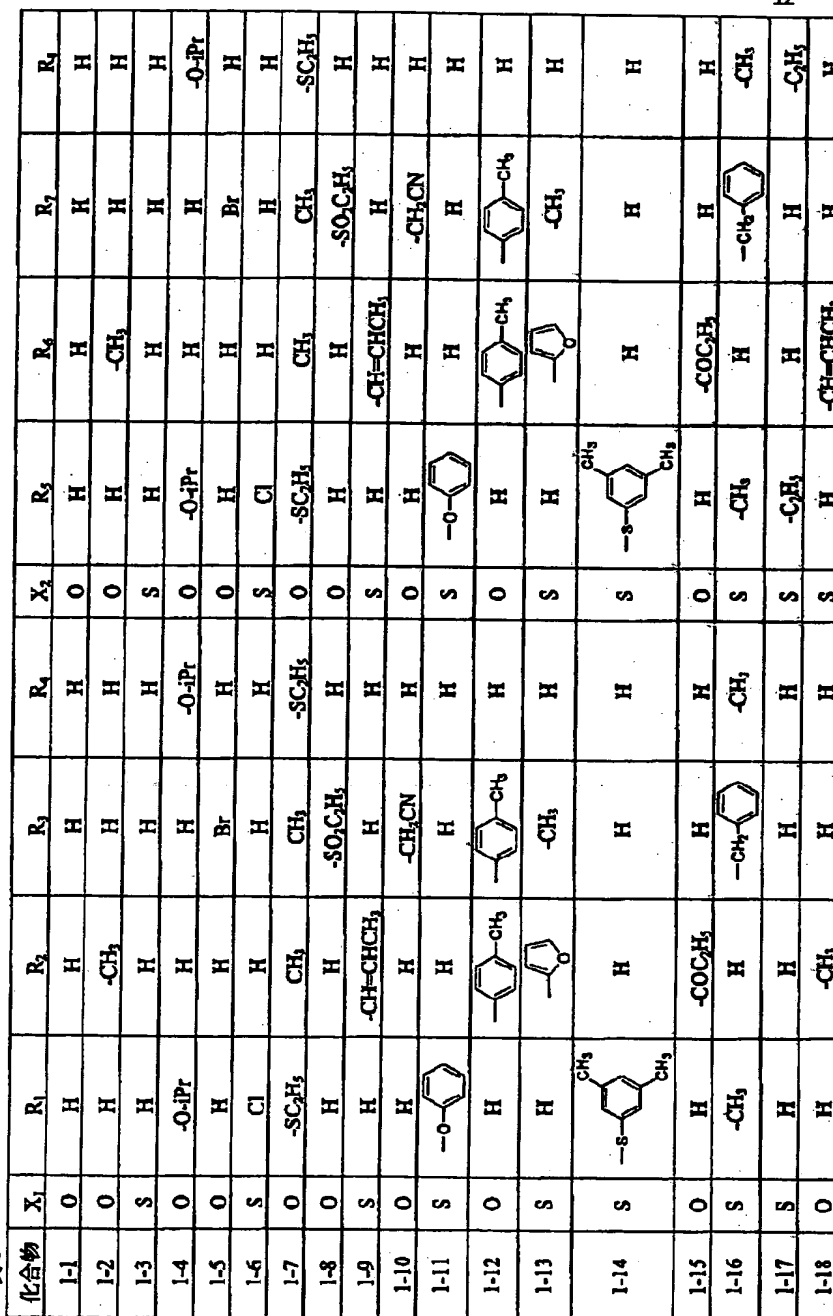 化合物 X₁ R₁ R₂ R₃ R₄ X₂ R₅ R₆ R₇
1-1 O H H H H O H H H H
1-2 O H -CH₃ H H O H -CH₃ H H
1-3 S H H H H S H H H H
1-4 O -O-iPr H H -O-iPr O -O-iPr H H -O-iPr
1-5 O H H Br H O H H Br H
1-6 S Cl H H H S Cl H H H
1-7 O -SC₂H₅ CH₃ CH₃ -SC₂H₅ O -SC₂H₅ CH₃ CH₃ -SC₂H₅
1-8 O H H -SO₂C₂H₅ H O H H -SO₂C₂H₅ H
1-9 S H -CH=CHCH₃ H H S H -CH=CHCH₃ H H
1-10 O H H -CH₂CN H O H H -CH₂CN H
1-11 S —O— H H H S —O— H H H
1-12 O H —CH₃ —CH₃ H O H —CH₃ —CH₃ H
1-13 S H O -CH₃ H S H O -CH₃ H
1-14 S —S— CH₃ CH₃ H H H S —S— CH₃ CH₃ H H H
1-15 O H -COC₂H₅ H H O H -COC₂H₅ H H
1-16 S -CH₃ H —CH₂— -CH₃ S -CH₃ H —CH₂— -CH₃
1-17 S H H H H S -C₂H₅ H H -C₂H₅
1-18 O H -CH₃ H H S H -CH=CHCH₃ H H